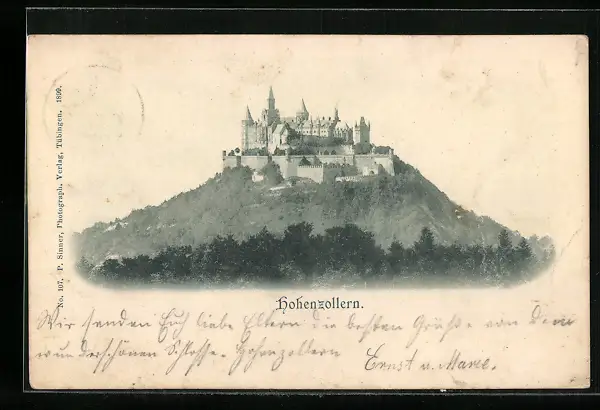 No. 167. P. Sinner, Photograph. Verlag, Tübingen. 1899.
Hohenzollern.
Wir senden Euch liebe Eltern die besten Grüße von dem
wunderschönen Schlosse. Hohenzollern
Ernst u. Marie.